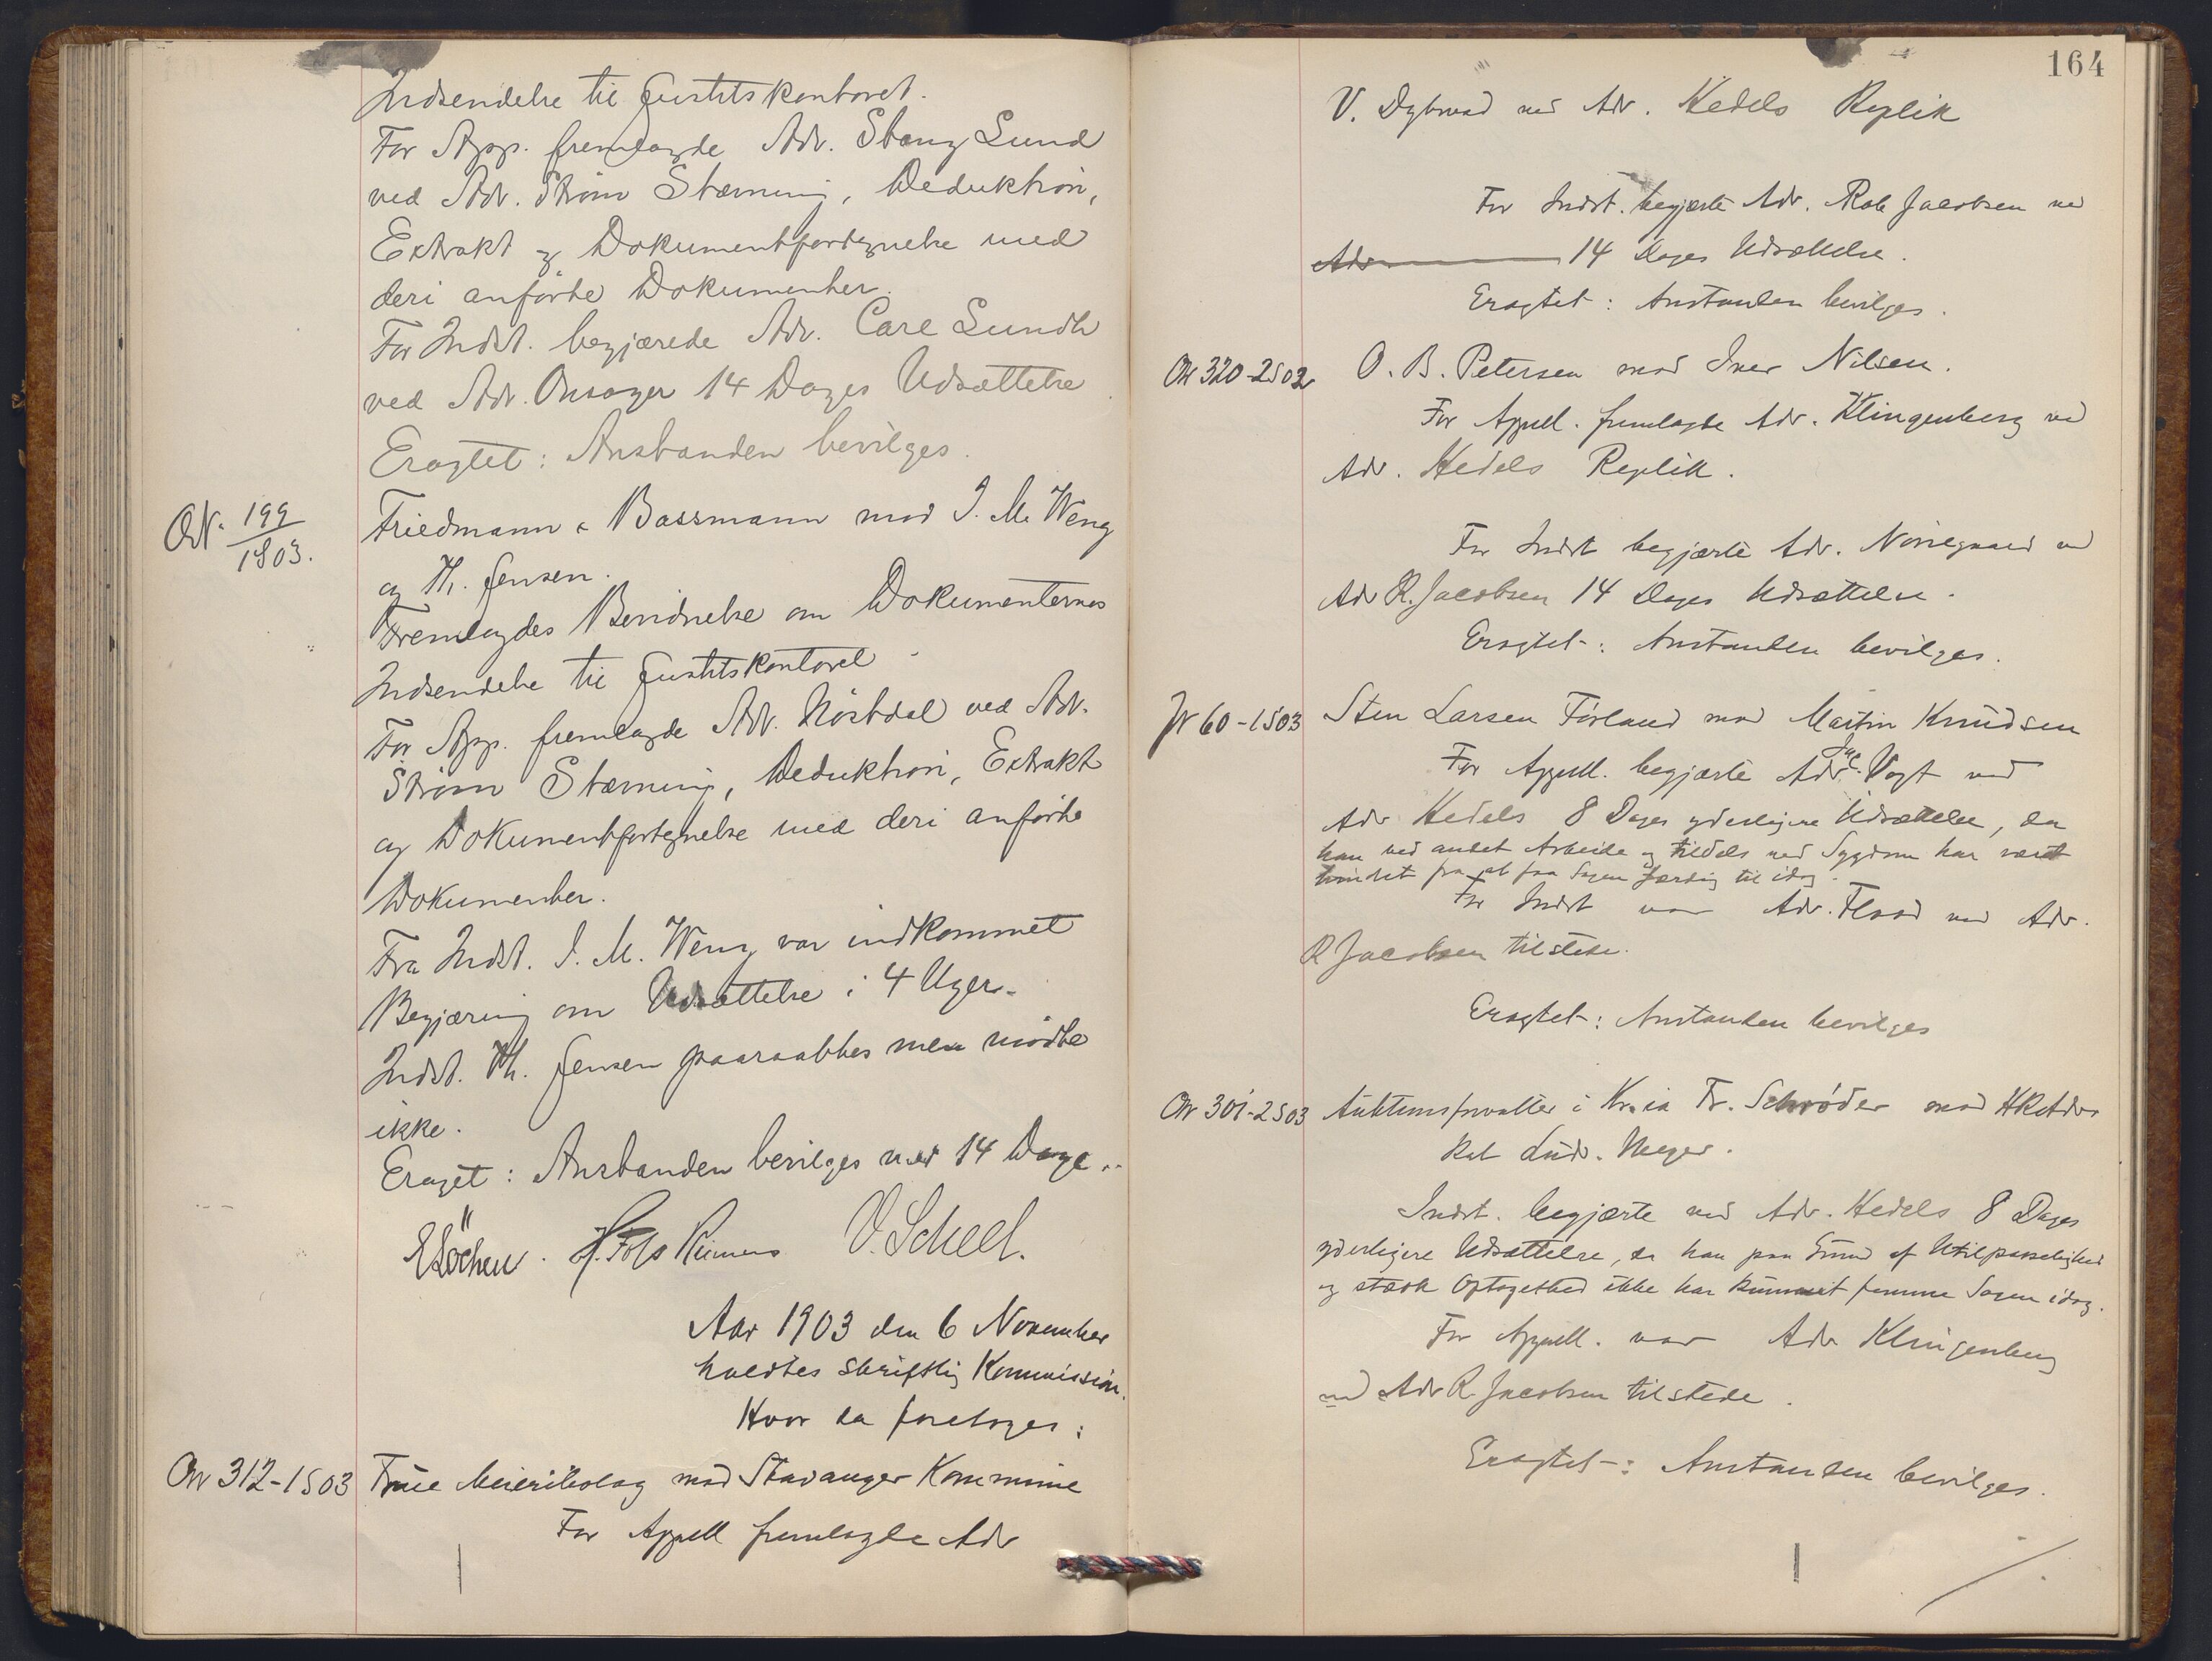 Indsendelse til Justitskontoret.
For App. fremlagde Adv. Stang Lund
ved Adv. Strøm Stævning, Deduktion,
Extrakt og Dokumentfortegnelse med
deri anførte Dokumenter.
For Indst. begjærede Adv. Carl Lundh
ved Adv. Onsager 14 Dages Udsættelse.
Eragtet: Anstanden bevilges.
ON. 199
1903.
Friedmann & Bassmann mod I. M. Weng
og Th. Jensen.
Fremlagdes Bevidnelse om Dokumenternes
Indsendelse til Justitskontoret
For App. fremlagde Adv. Nørstdal ved Adv.
Strøm Stævning, Deduktion, Extrakt
og Dokumentfortegnelse med deri anførte
Dokumenter.
Fra Indst. I. M. Weng var indkommet
Begjæring om Udsættelse i 4 Uger.
Indst. Th. Jensen paaraabtes men mødte
ikke.
Eragtet: Anstanden bevilges med 14 Dage.
E Løchen. V. Scheel.
Aar 1903 den 6 November
holdtes skriftlig Kommission.
Hvor da foretoges:
ON 312-1 S 03 Time Meieribolag mod Stavanger Kommune
For Appell fremlagde Adv
164
V. Dybwad ved Adv. Hedels Replik
For Indst. begjærte Adv. Rob Jacobsen ved
Adv. 14 Dages Udsættelse.
Eragtet: Anstanden bevilges.
ON 320-2 S 02 O. B. Petersen mod Iver Nilsen.
For Appell. fremlagde Adv. Klingenberg ved
Adv. Hedels Replik.
For Indst begjærte Adv. Nørregaard ved
Adv R. Jacobsen 14 Dages Udsættelse.
Eragtet: Anstanden bevilges.
N 60-1 S 03 Sten Larsen Førland mod Martin Knudsen
For Appell. begjærte Adv. Vogt ved
Adv Hedels 8 Dages yderligere Udsættelse, da
han ved andet Arbeide og tildels ved Sygdom har været
hindret fra at faa Sagen færdig til idag.
For Indst var Adv. Flood ved Adv.
R Jacobsen tilstede.
Eragtet: Anstanden bevilges
ON 301-2 S 03 Auktionsforvalter i Kr.ia Fr. Schrøder mod HRAdv.
Ludv. Meyer.
Indst. begjærte ved Adv. Hedels 8 Dages
yderligere Udsættelse, da han paa Grund af Utilpasselighed
og stærk Optagethed ikke har kunnet fremme Sagen idag.
For Appell. var Adv Klingenberg
ved Adv R Jacobsen tilstede.
Eragtet: Anstanden bevilges.